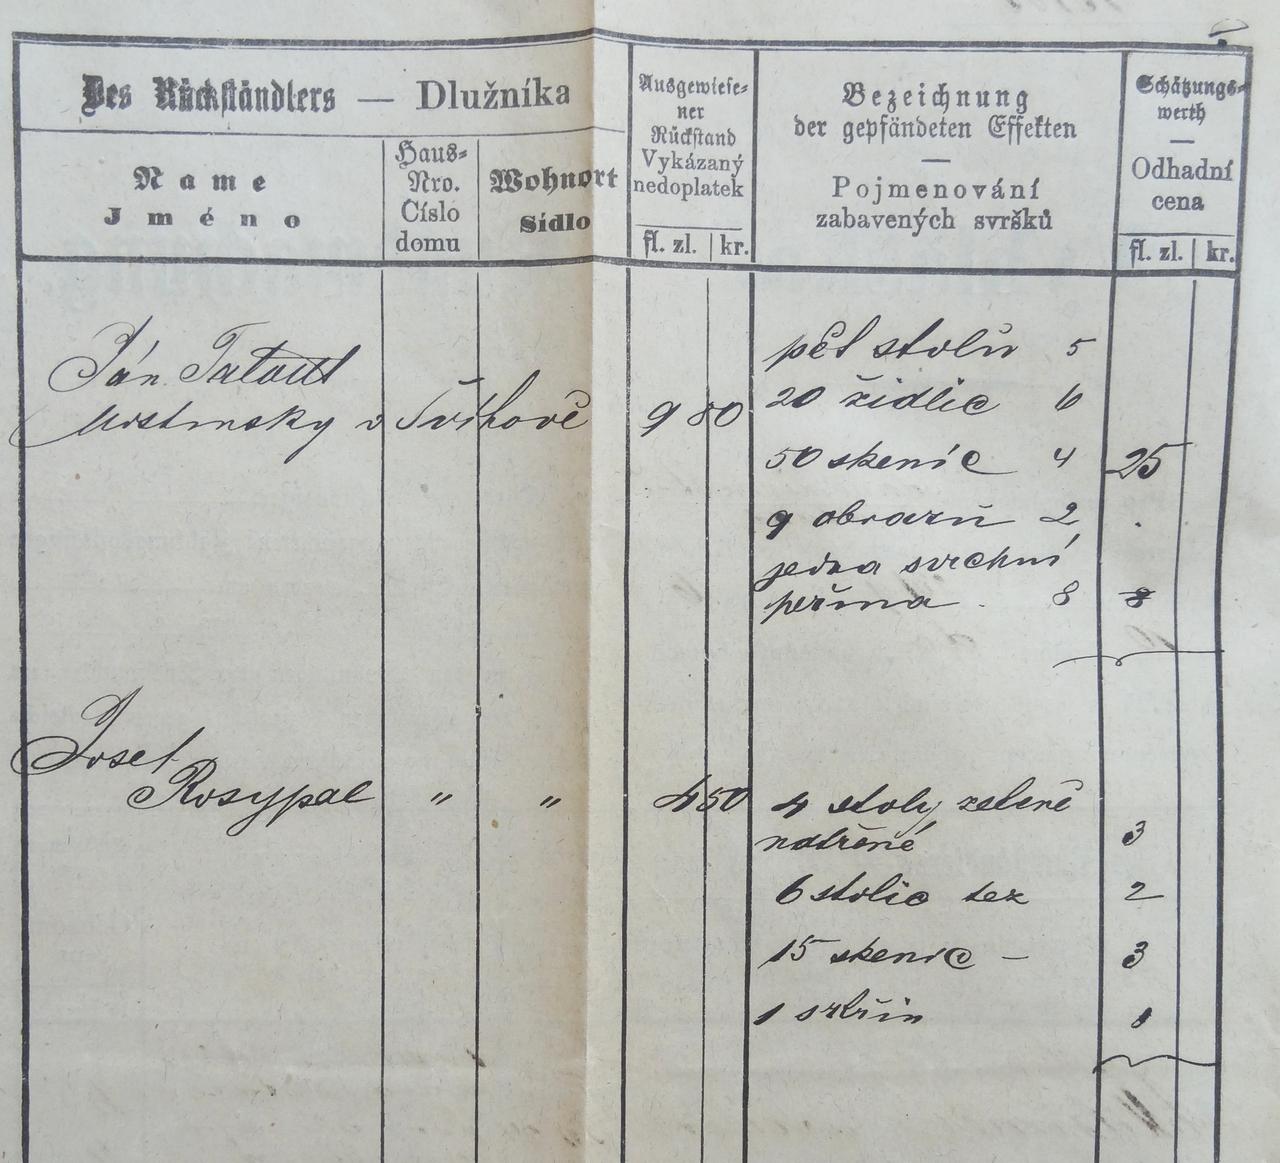 Des Rückständlers — Dlužníka
Name
Jméno
Haus-
Nro.
Číslo
domu
Wohnort
Sídlo
Ausgewiese-
ner
Rückstand
Vykázaný
nedoplatek
fl. zl. kr.
Bezeichnung
der gepfändeten Effekten
—
Pojmenování
zabavených svršků
Schätzungs-
werth
—
Odhadní
cena
fl. zl. kr.
Ján
v Švihově 9 80
pět stolů 5
20 židlic 6
50 skenic 4 25
9 obrazů 2
jedna svrchní
peřina 8 8
Josef
Rosypal " " 4 50
4 stoly zeleně
natřené 3
6 stolic tez 2
15 skenic — 3
1 1